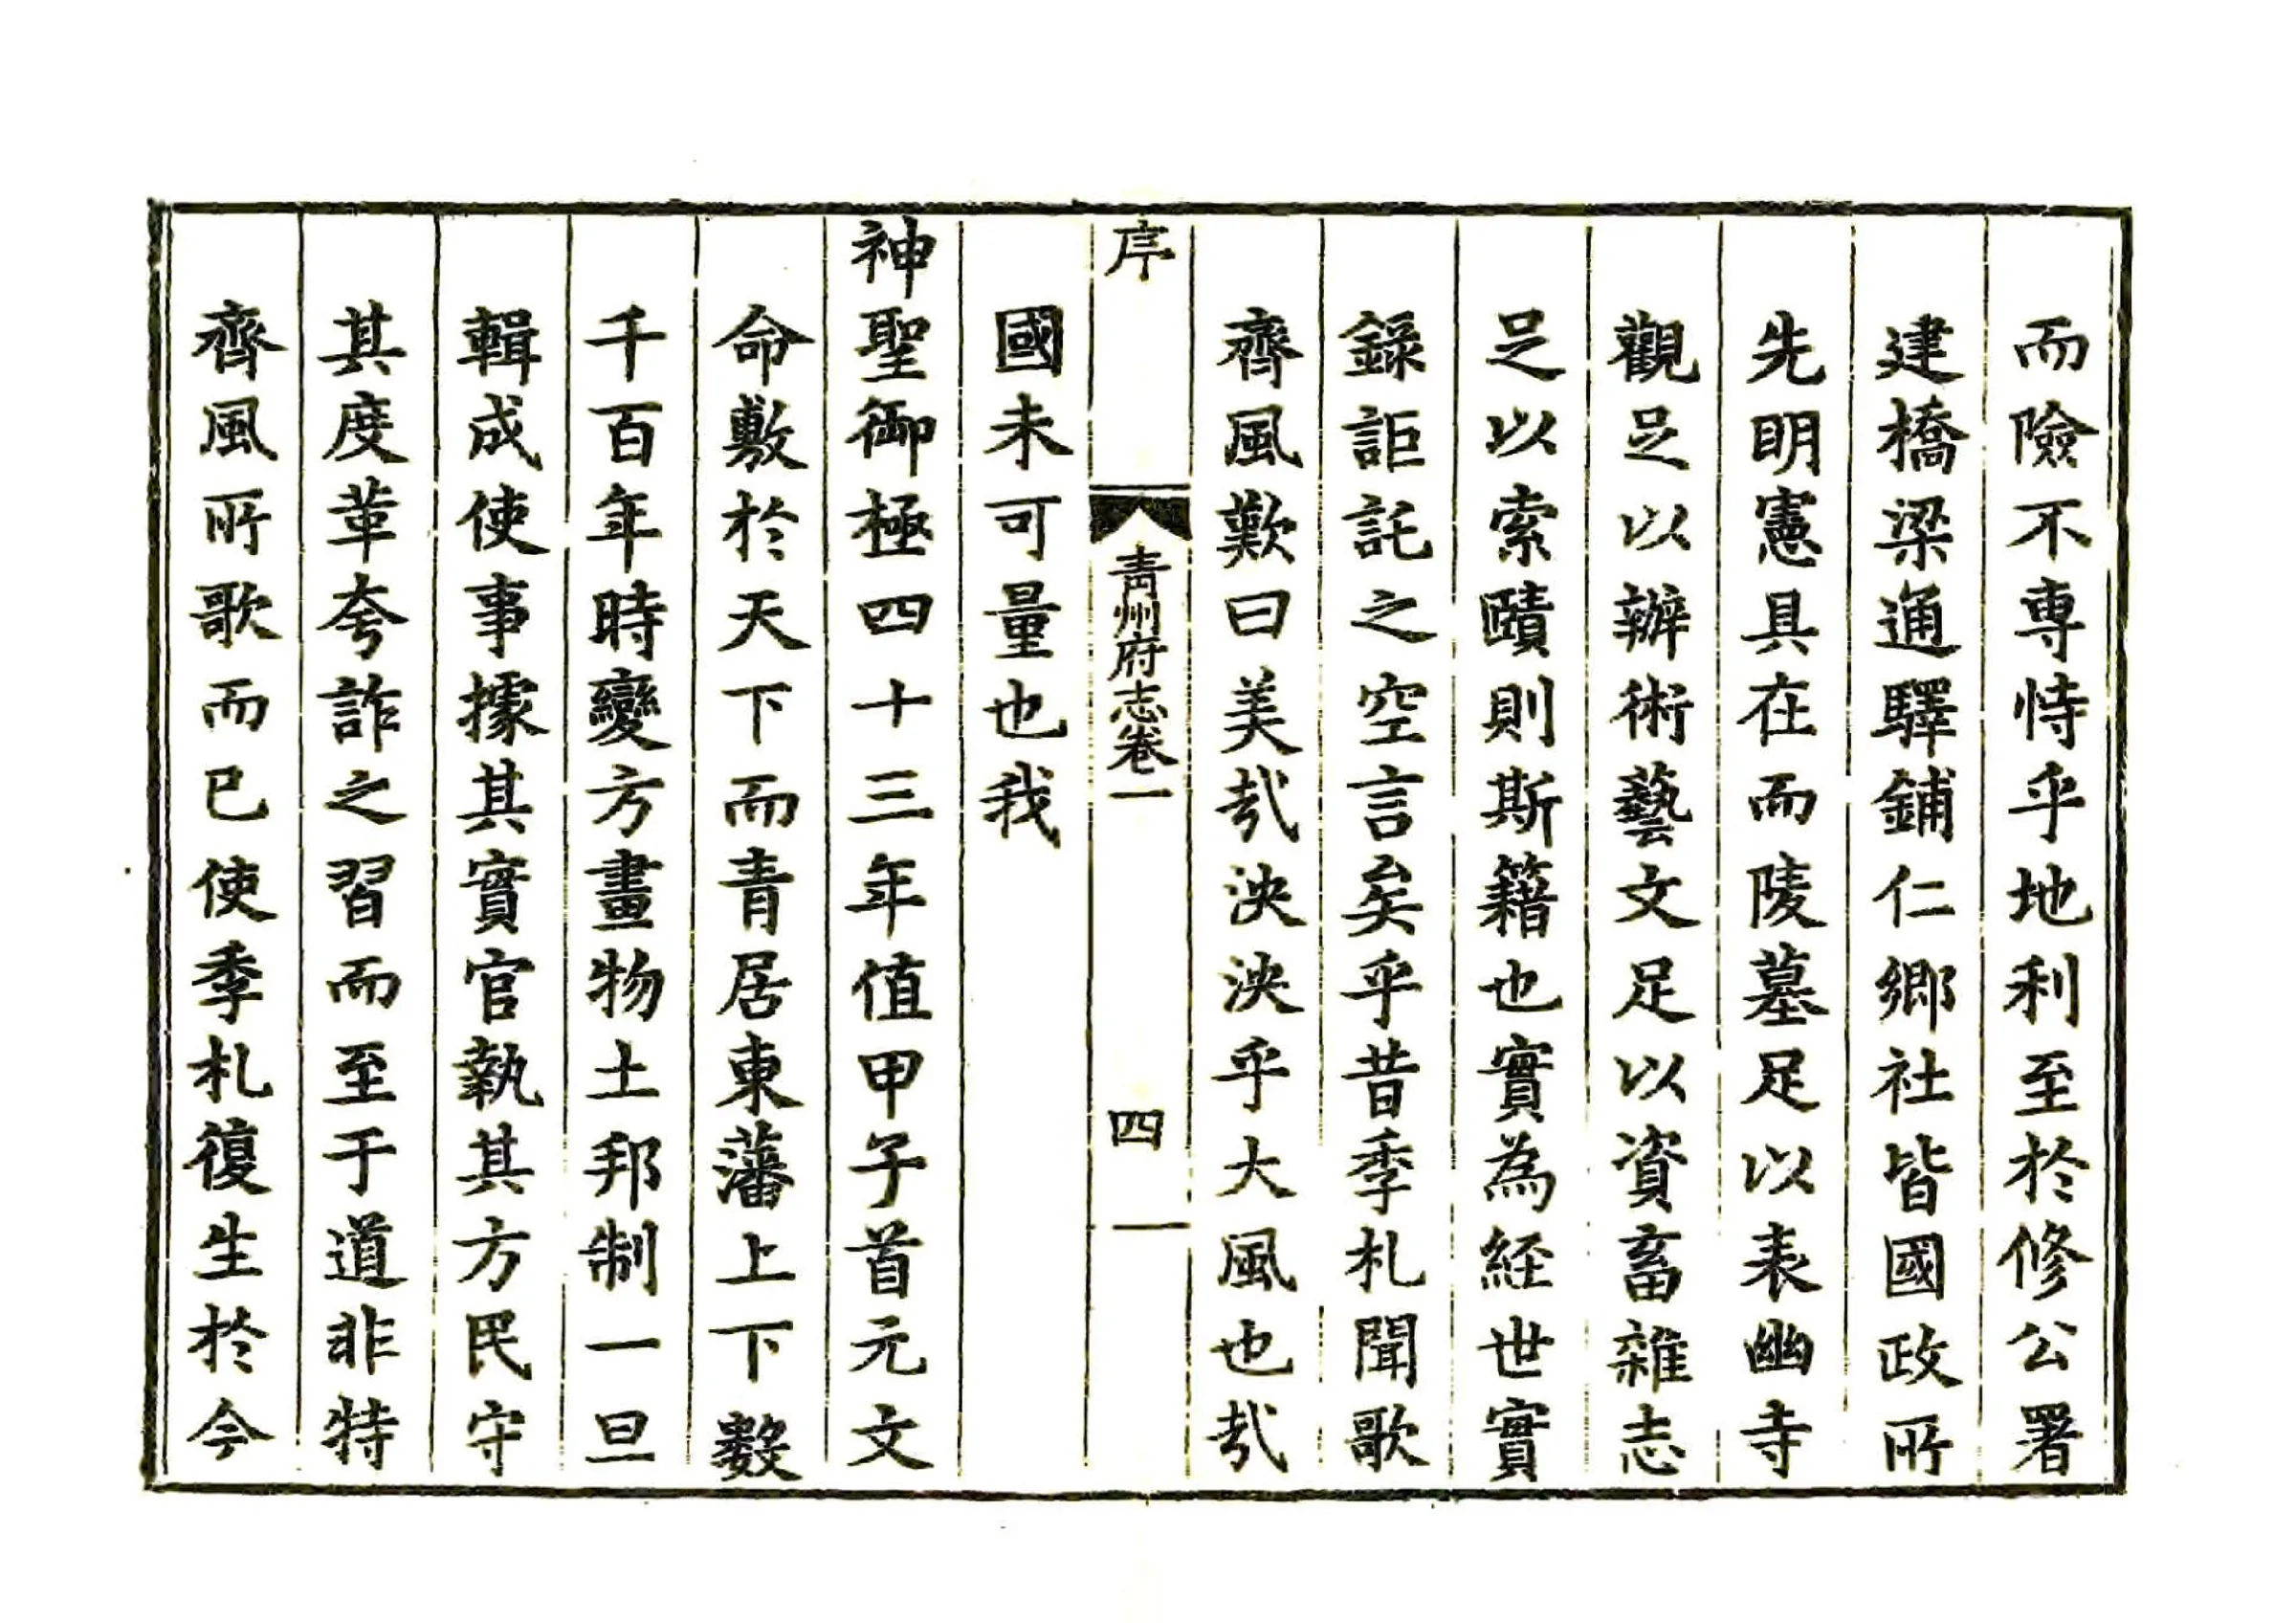 而險不專恃乎地利至於修公署
建橋梁通驛鋪仁鄉社皆國政所
先明憲具在而陵墓足以表幽寺
觀足以辦術藝文足以資畜雜志
足以索賾則斯籍也實為經世實
錄詎託之空言矣乎昔季札聞歌
齊風歎曰美㢤泱泱乎大風也㢤
序
青州府志卷一
四
國未可量也我
神聖御極四十三年值甲子首元文
命敷於天下而青居東藩上下數
千百年時變方畫物土邦制一旦
輯成使事據其實官執其方民守
其度革夸詐之習而至于道非特
齊風所歌而已使季札復生於今